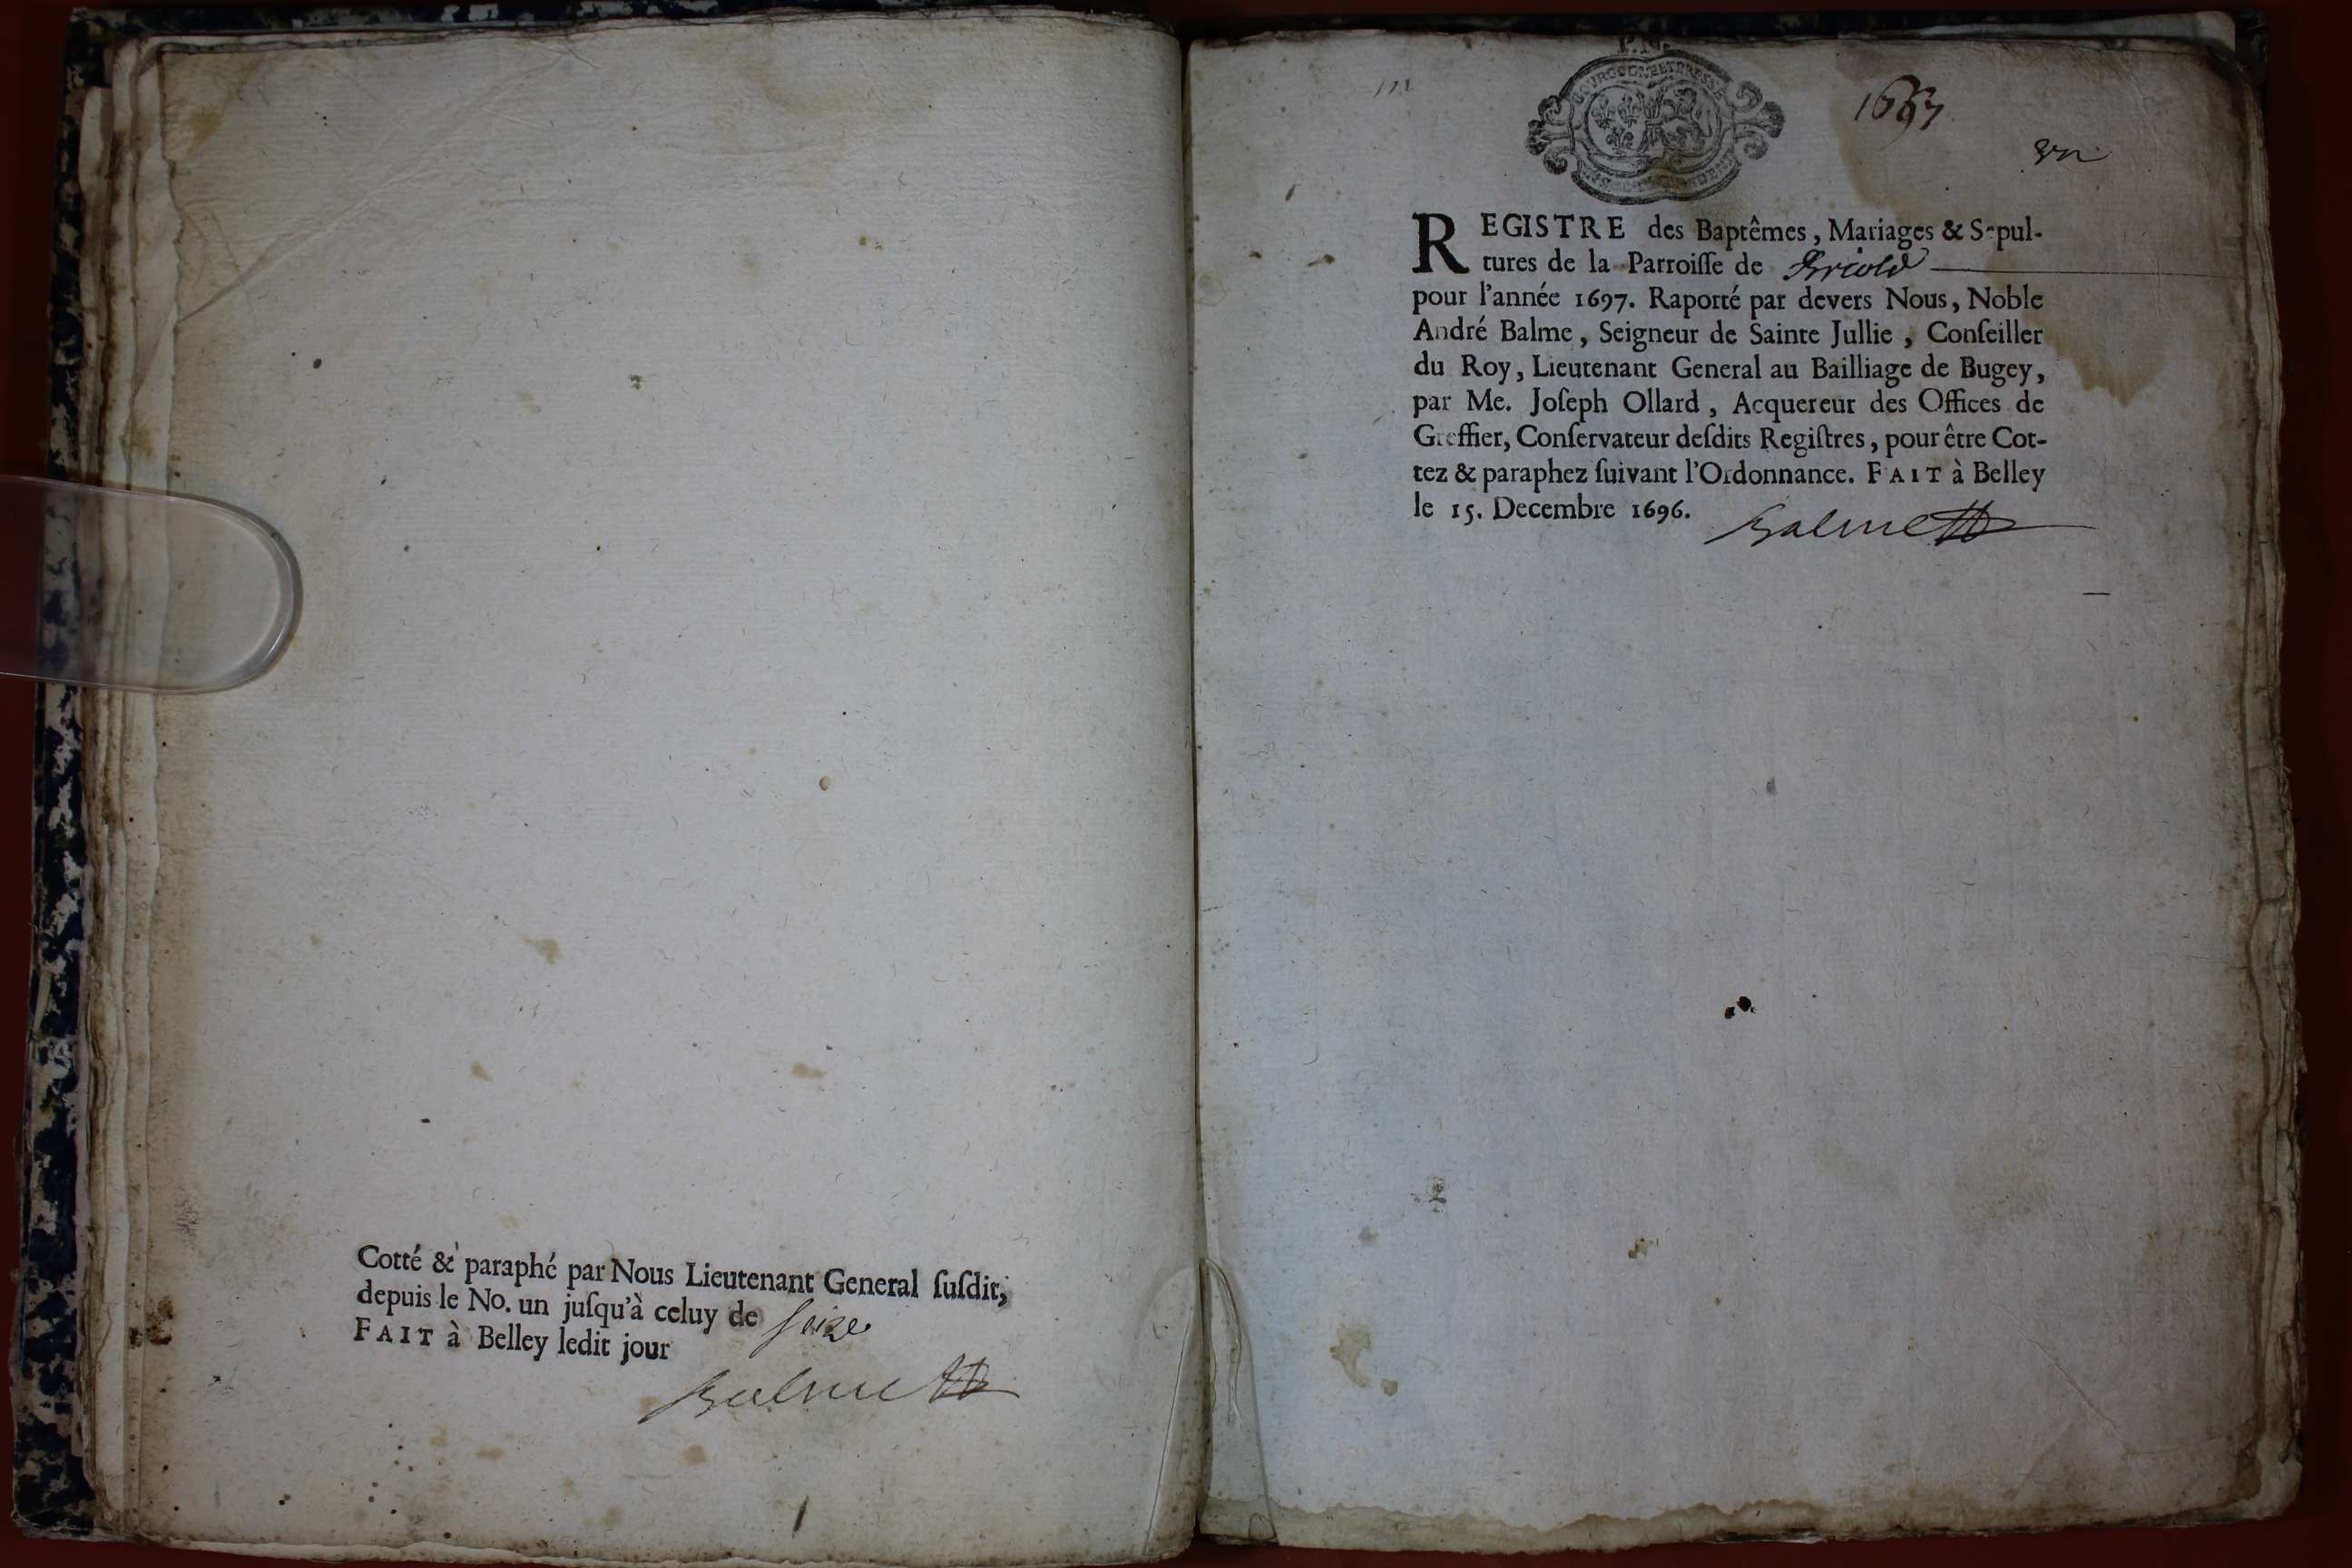 Cotté & paraphé par Nous Lieutenant General ſuſdit,
depuis le No. un juſqu'à celuy de ſeize
FAIT à Belley ledit jour
Balme
P.N.
BOURGOGNE ET BRESSE
1697
un
REGISTRE des Baptêmes, Mariages & Sepul-
tures de la Parroiſſe de
pour l'année 1697. Raporté par devers Nous, Noble
André Balme, Seigneur de Sainte Jullie, Conſeiller
du Roy, Lieutenant General au Bailliage de Bugey,
par Me. Joſeph Ollard, Acquereur des Offices de
Greffier, Conſervateur deſdits Regiſtres, pour être Cot-
tez & paraphez ſuivant l'Ordonnance. FAIT à Belley
le 15. Decembre 1696.
Balme